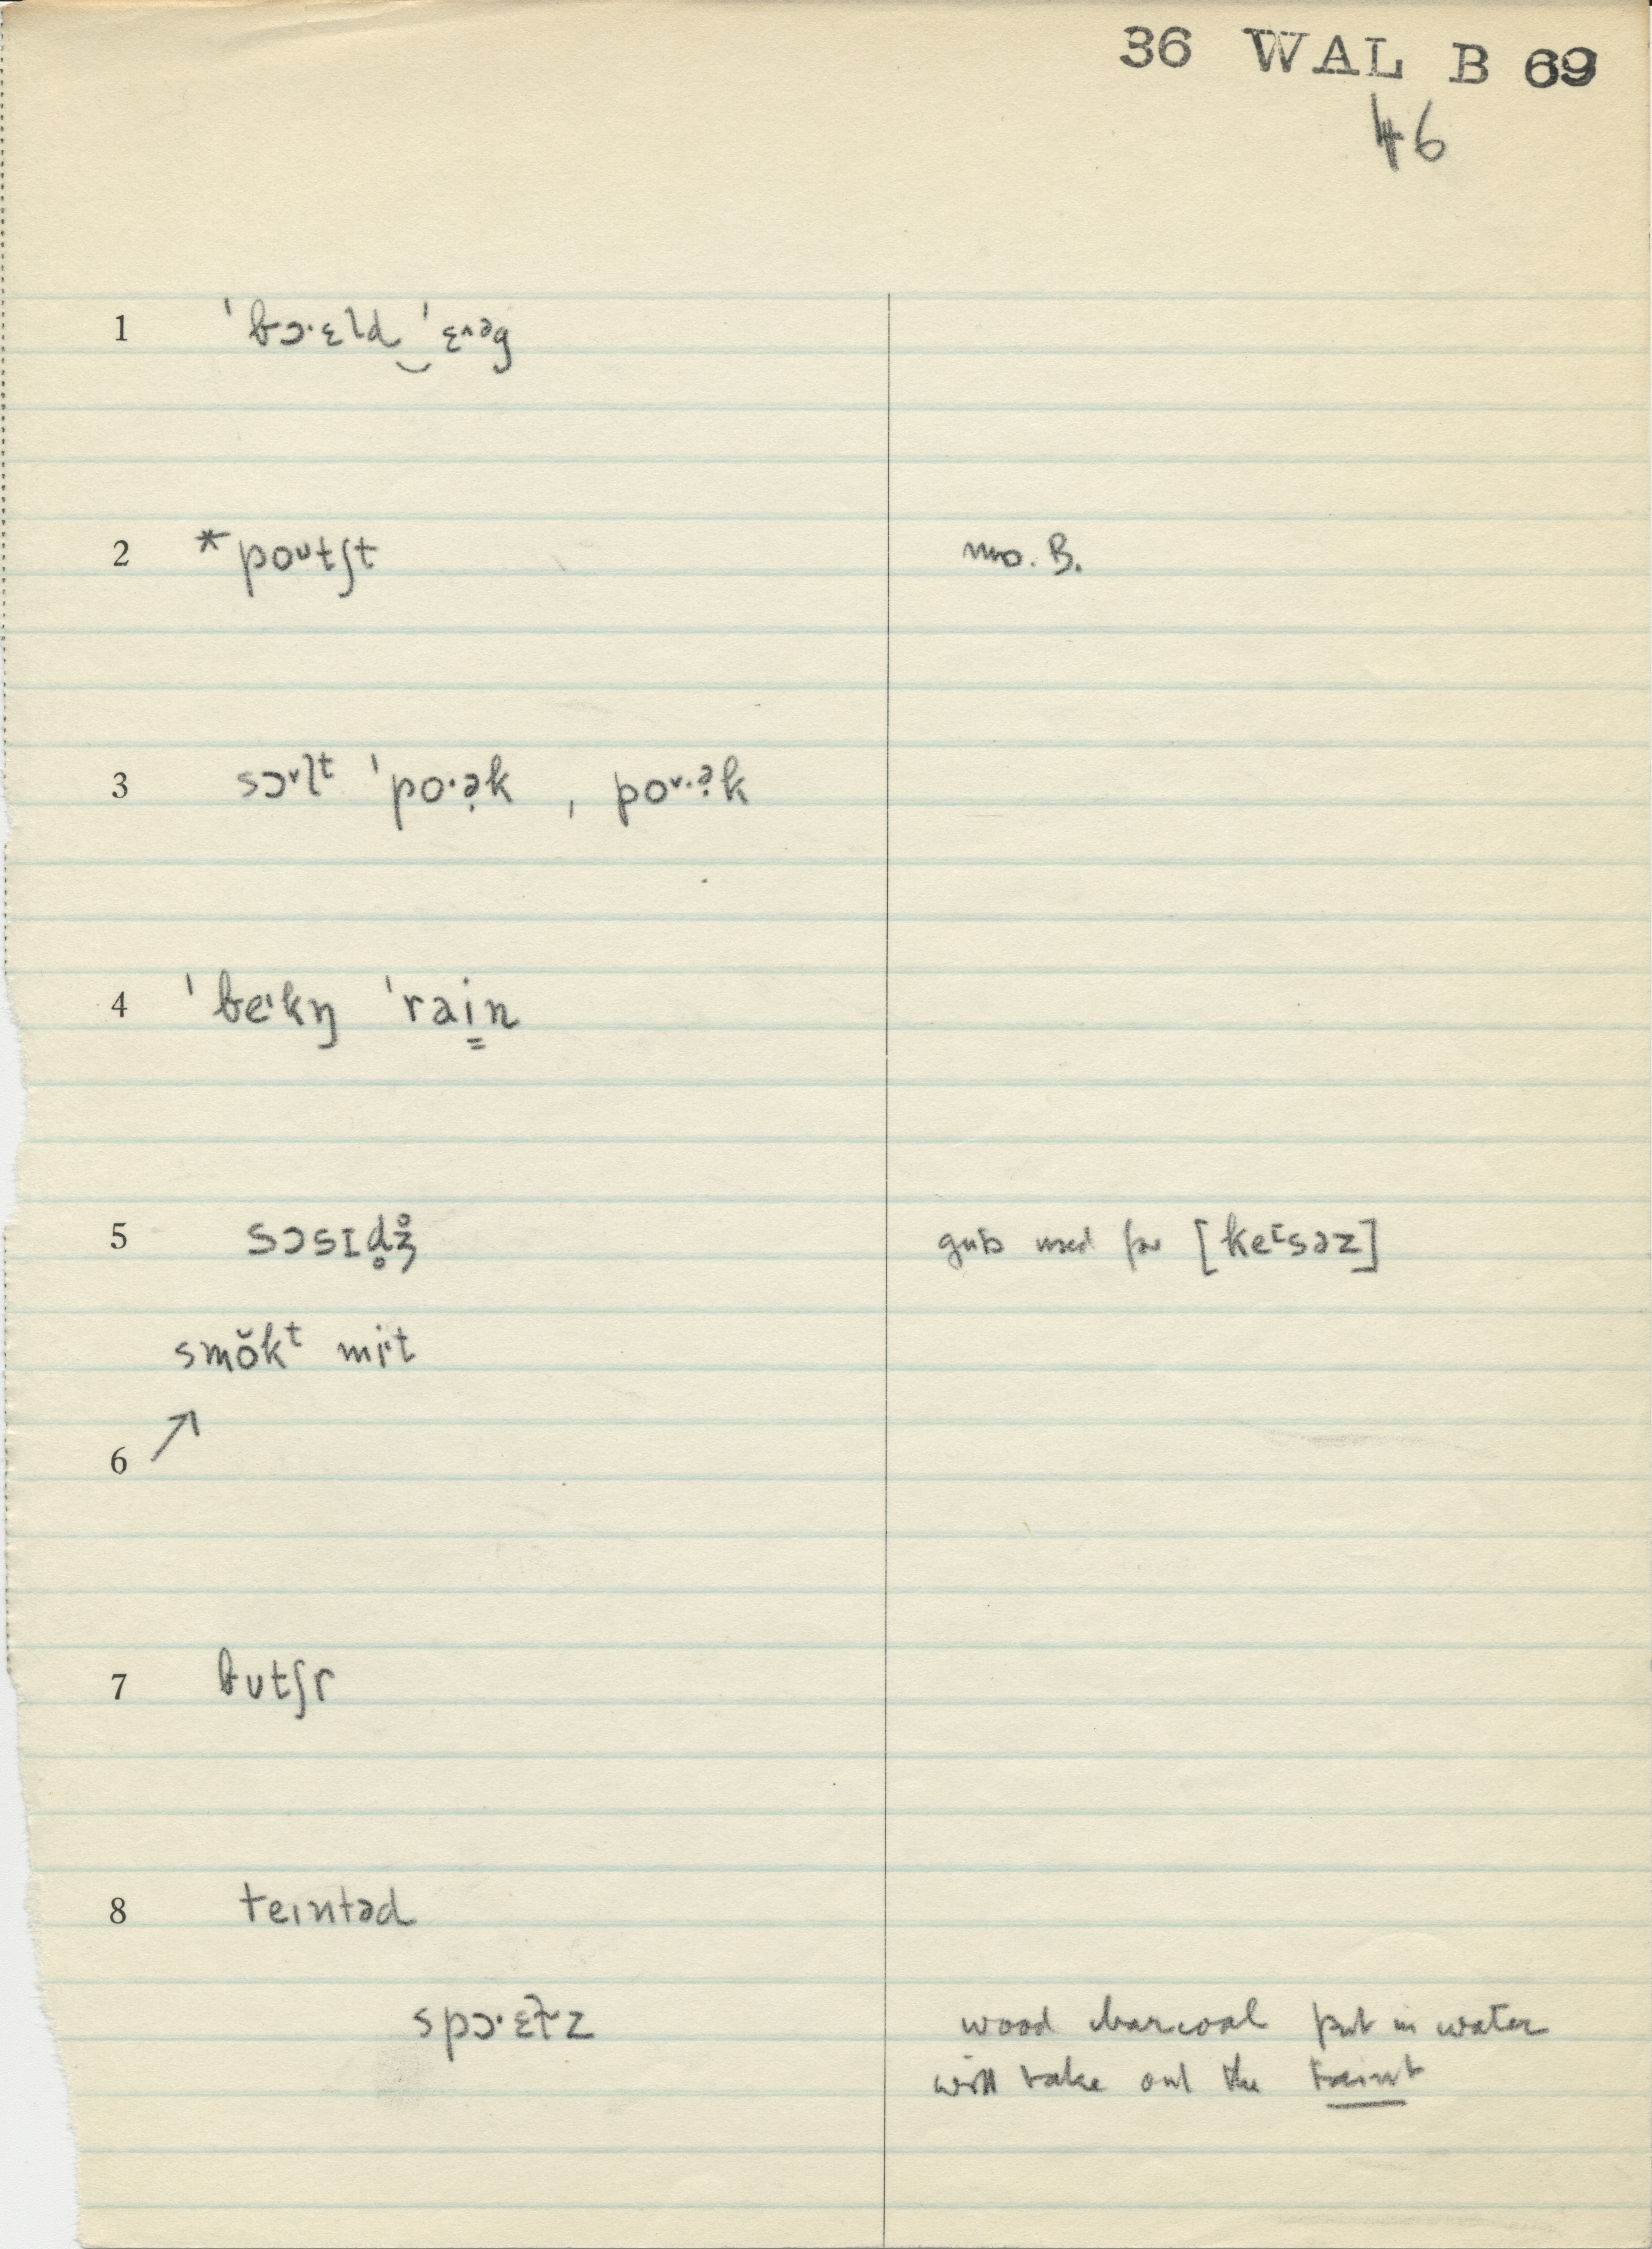 36 WAL B 69
46
1 ˈbɔ·ɛld‿ˈɛ^əg
2 *poᴜtʃt mo. B.
3 sɔᵛlᵗ ˈpo·ə̣k , poᵛ·ə̣k
4 ˈbeᶦkŋ ˈrai̳n
5 sɔsɪd̥ʒ̊ guts used for [keɪsəz]
smŏkᵗ mi·t
6 ↗
7 butʃr
8 teɪntəd
spɔ·ɛɫz wood charcoal put in water
will take out the taint